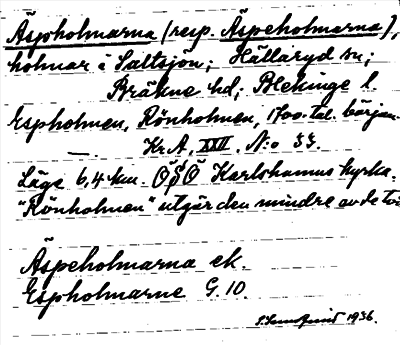 Äspholmarna (resp. Äspeholmarna),
holmar i Saltsjön; Hällaryd sn;
Bräkne hd; Blekinge l.
Espholmen, Rönholmen, 1700-tal. början
— Kr.A. XXII. N:o 33.
Läge 6,4 km. ÖSÖ Karlshamns kyrka.
"Rönholmen" utgör den mindre av de två
Äspeholmarna ek.
Espholmarne G. 10.
1936.